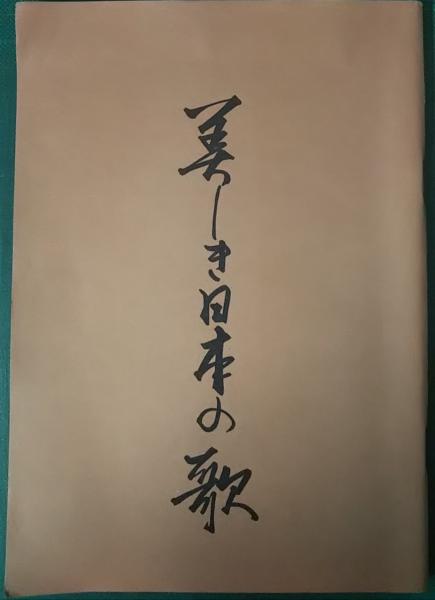 美しき日本の歌